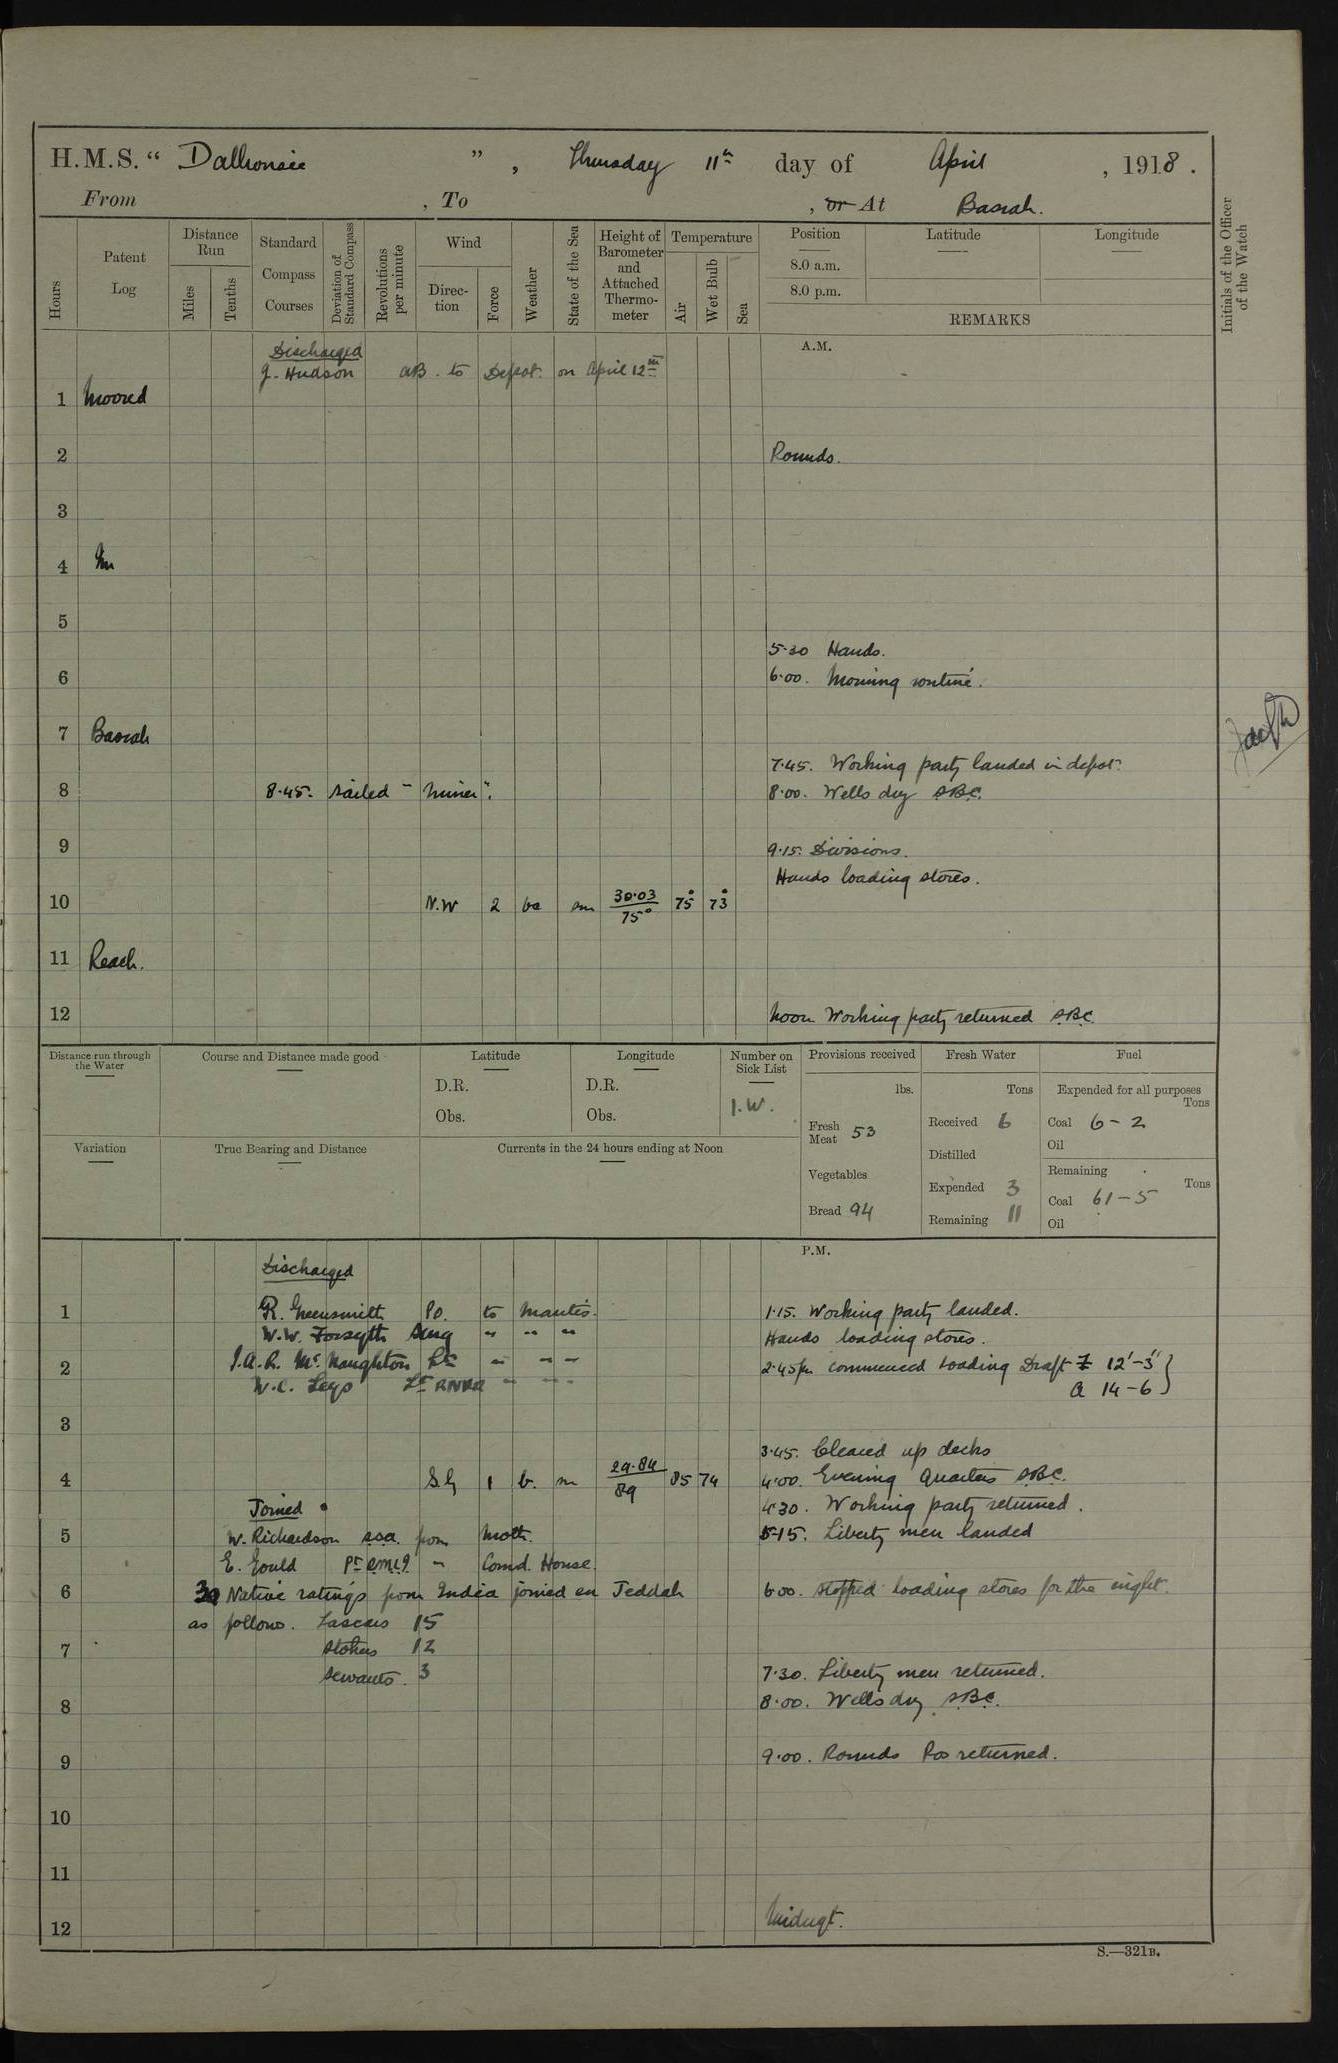 H.M.S. “ Dalhousie ” , Thursday 11th day of April , 1918 .
From , To , or At Basrah.
Hours
Patent Log
Distance Run
Miles
Tenths
Standard Compass Courses
Deviation of Standard Compass
Revolutions per minute
Wind
Direction
Force
Weather
State of the Sea
Height of Barometer and Attached Thermometer
Temperature
Air
Wet Bulb
Sea
Position
8.0 a.m.
8.0 p.m.
Latitude
Longitude
REMARKS
Initials of the Officer of the Watch
A.M.
Discharged
J. Hudson AB. to Depot. on April 12th
1 Moored
2 Rounds.
3
4 In
5
5.30 Hands.
6 6.00. Morning routine.
7 Basrah
7.45. Working party landed in depot.
8 8.45. Sailed "Miner". 8.00. Wells dry SBC.
9 9.15. Divisions.
Hands loading stores.
10 N.W 2 bc sm 30.03 75° 75° 73°
11 Reach.
12 Noon Working party returned SBC.
Distance run through the Water
Course and Distance made good
Latitude
D.R.
Obs.
Longitude
D.R.
Obs.
Number on Sick List
1.W.
Provisions received
lbs.
Fresh Meat 53
Vegetables
Bread 94
Fresh Water
Tons
Received 6
Distilled
Expended 3
Remaining 11
Fuel
Expended for all purposes
Tons
Coal 6-2
Oil
Remaining
Tons
Coal 61-5
Oil
Variation
True Bearing and Distance
Currents in the 24 hours ending at Noon
P.M.
Discharged
1 R. Greensmith PO. to Mantis. 1.15. Working party landed.
W.W. Forsyth Surg " " " Hands loading stores.
2 J.A.R. McNaughton Lt " " " 2.45pm commenced loading Draft F 12'-3"
W.C. Leys Lt RNVR " " " A 14-6
3
3.45. Cleared up decks
4 S.E 1 b. m 29.84 89 85 74 4.00. Evening Quarters SBC.
Joined 4.30. Working party returned.
5 W. Richardson SSA. from Moth. 5.15. Liberty men landed
E. Gould Pt RMLI " Comd. House.
6 30 Native ratings from India joined ex Jeddah 6.00. Stopped loading stores for the night.
as follows. Lascars 15
7 Stokers 12
Servants. 3 7.30. Liberty men returned.
8 8.00. Wells dry. SBC.
9 9.00. Rounds Pos returned.
10
11
12 Midngt.
S.—321B.